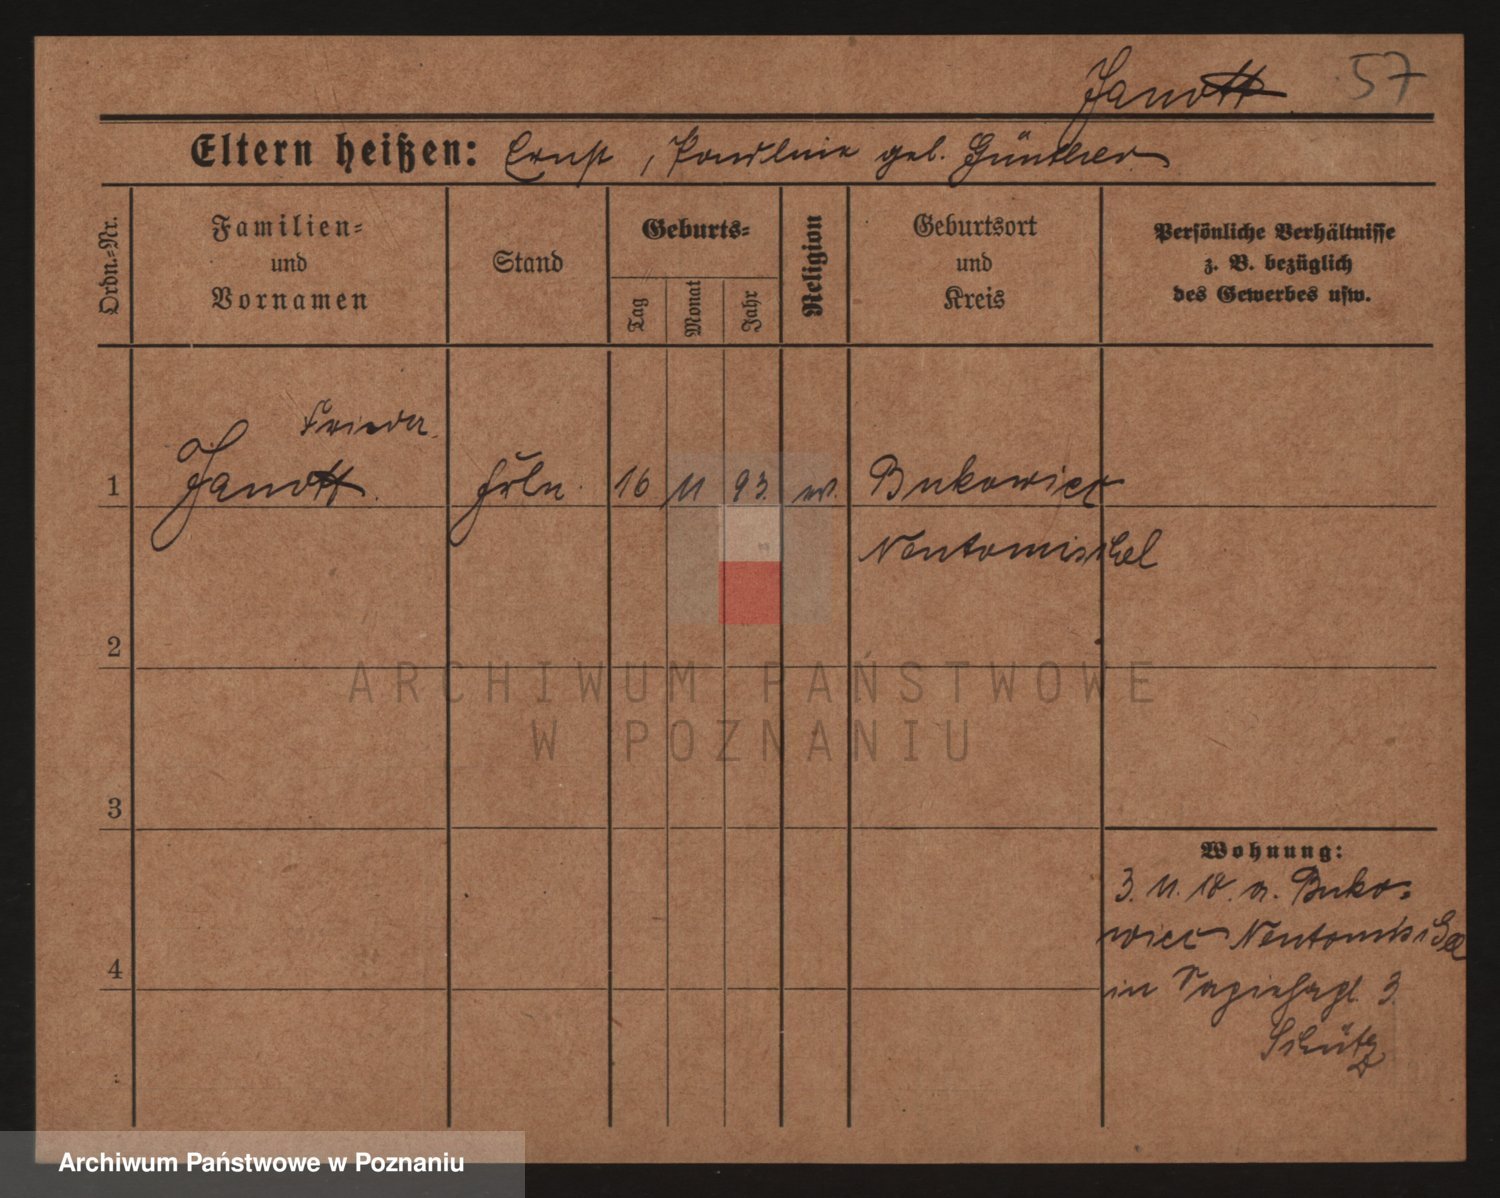 Janott 57
Eltern heißen: Ernst, Paudline geb. Günther
Ordn.-Nr.
Familien-
und
Vornamen
Stand
Geburts-
Tag
Monat
Jahr
Religion
Geburtsort
und
Kreis
Persönliche Verhältnisse
z. B. bezüglich
des Gewerbes usw.
Frieda
1 Janott. Frln. 16 11 93. ev. Bukowiec
Neutomischel
2
3
4
Wohnung:
3. 11. 18. a. Buko-
wiec Neutomischel
in 3.
Schütz
ARCHIWUM PAŃSTWOWE
W POZNANIU
Archiwum Państwowe w Poznaniu